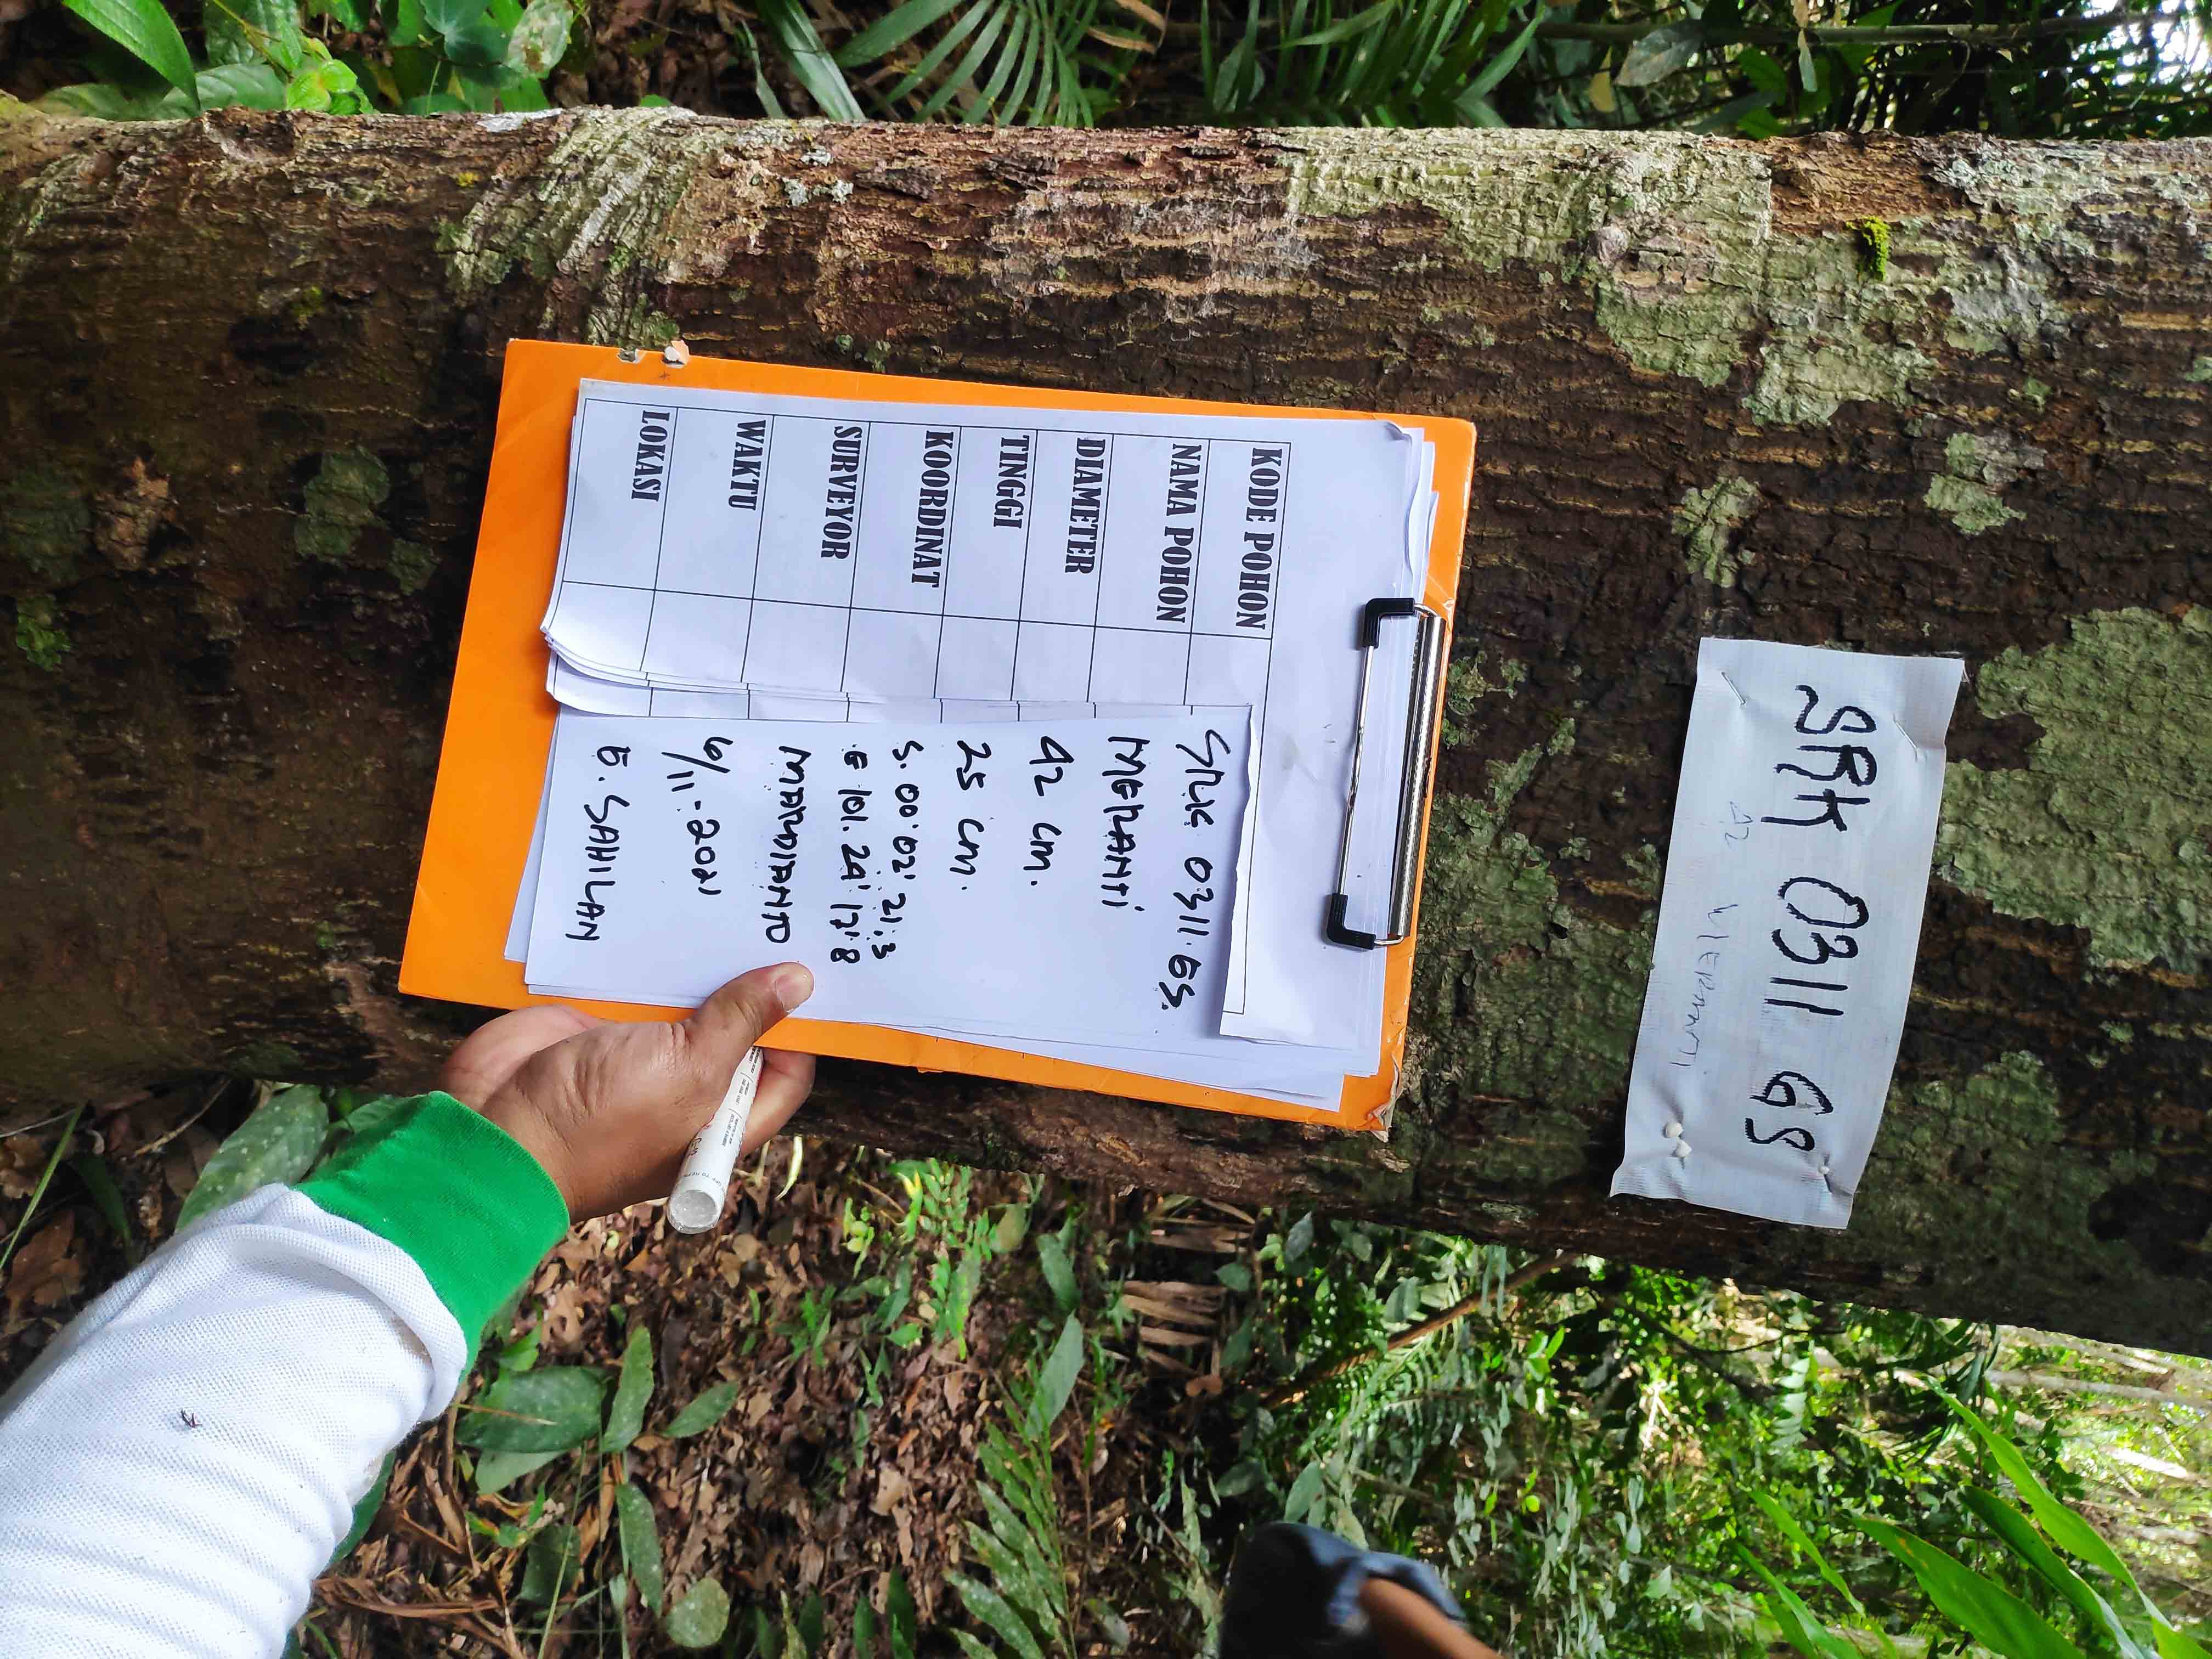 SRK 0311 GS
42 MERANTI
KODE POHON SRK 0311 GS.
NAMA POHON MERANTI
DIAMETER 42 cm.
TINGGI 25 cm.
KOORDINAT S. 00° 02' 21.3
E 101. 24' 17' 8
SURVEYOR MARDIANTO
WAKTU 6/11-2021
LOKASI G. SAHILAN